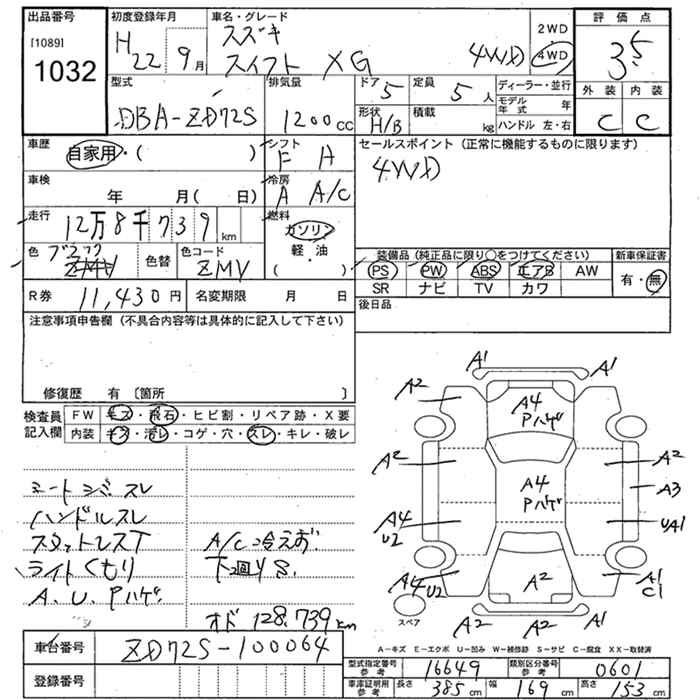 出品番号
[1089]
1032
初度登録年月
H22 9月
車名・グレード
スズキ
スイフト XG 4WD
2WD
4WD
評価点
3.5
外装 内装
C C
型式
DBA-ZD72S
排気量
1200cc
ドア 5
定員 5人
ディーラー・並行
モデル年式 年
形状 H/B
積載 kg
ハンドル 左・右
車歴
自家用・( )
シフト
F A
セールスポイント (正常に機能するものに限ります)
4WD
車検
年 月( 日)
冷房
A A/C
走行
12万8千739km
燃料
ガソリン
軽・油
( )
色 ブラック
ZMV
色替
色コード
ZMV
装備品 (純正品に限り○をつけてください)
新車保証書
PS PW ABS エアB AW
有・無
SR ナビ TV カワ
R券 11,430円
名変期限 月 日
後日品
注意事項申告欄 (不具合内容等は具体的に記入して下さい)
修復歴 有 〔箇所 〕
検査員
記入欄
FW キズ・飛石・ヒビ割・リペア跡・X要
内装 キズ・汚レ・コゲ・穴・スレ・キレ・破レ
シミ スレ
ハンドルスレ
スタットレスT
ライトくもり
A、U、Pハゲ
A/C冷えず
下回りS
オド 128.739km
A1
A2 A1
A4
Pハゲ
A2 A2
A4
Pハゲ
A3
A4
U2
UA1
A4 U2
A2
A1
C1
スペア
A2 A2 A1
A−キズ E−エクボ U−凹み W−補修跡 S−サビ C−腐食 XX−取替済
車台番号
ZD72S-100064
登録番号
型式指定番号
参考
16649
類別区分番号
参考
0601
車庫証明用
参考
長さ 385cm 幅 169cm 高さ 153cm